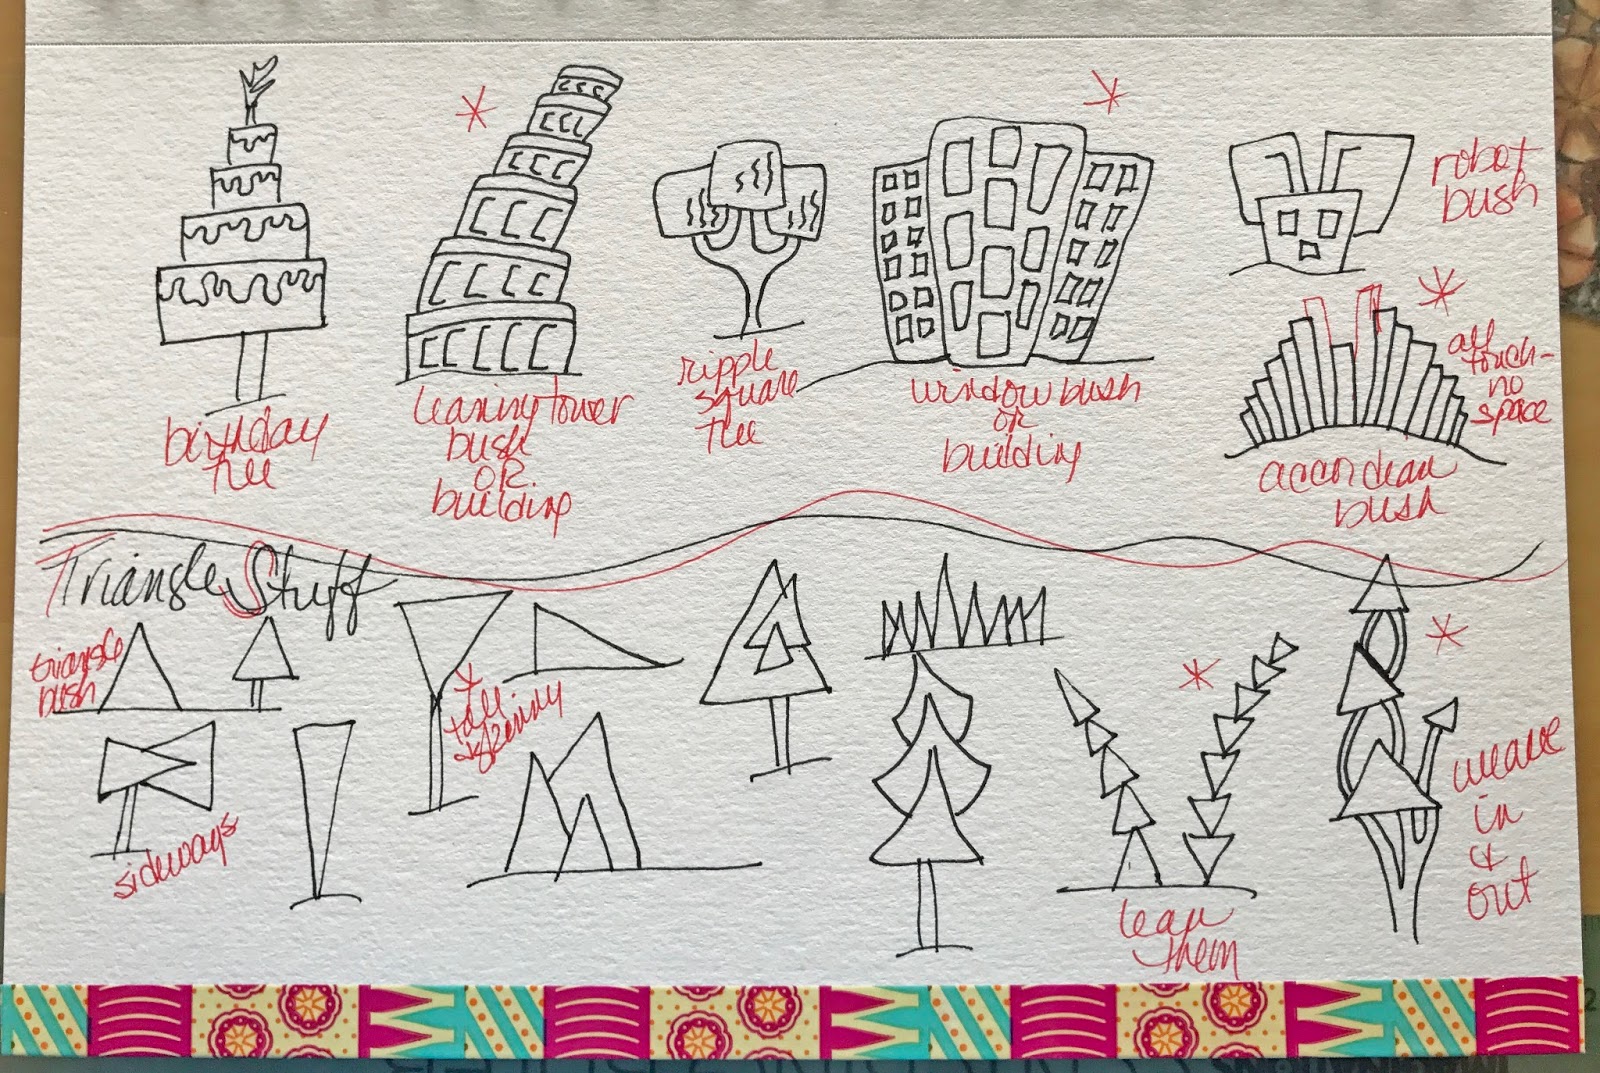 birthday
tree
leaning tower
bush
OR
building
ripple
square
tree
window bush
OR
building
robot
bush
all
touch-
no
space
accordean
bush
Triangle Stuff
triangle
bush
tall
skinny
sideways
lean
them
weave
in
&
out